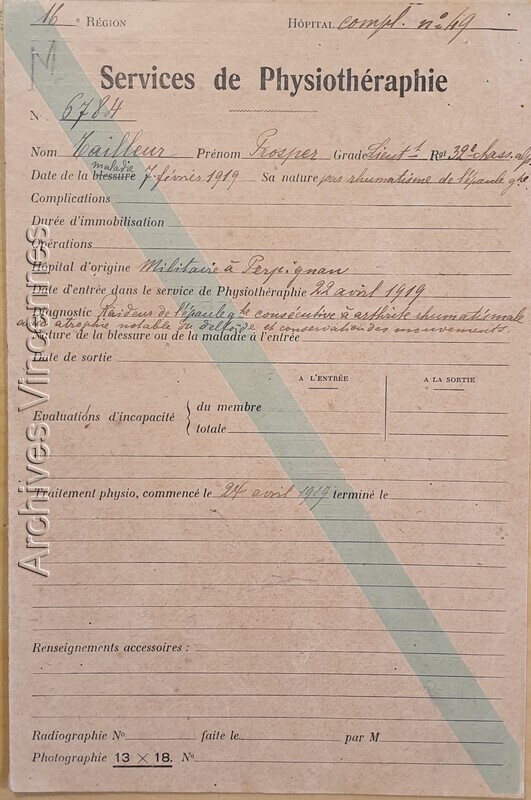 16e RÉGION HÔPITAL compl. no 49
M
Services de Physiothéraphie
No 6784
Nom Tailleur Prénom Prosper Grade Lieutt Rgt 39e chass. alp
maladie
Date de la blessure 7 février 1919 Sa nature par rhumatisme de l'épaule ghe
Complications
Durée d'immobilisation
Opérations
Hôpital d'origine Militaire à Perpignan
Date d'entrée dans le service de Physiothéraphie 22 avril 1919
Diagnostic Raideur de l'épaule ghe consécutive à arthrite rhumatismale
avec atrophie notable du deltoïde et conservation des mouvements.
Nature de la blessure ou de la maladie à l'entrée
Date de sortie
A L'ENTRÉE A LA SORTIE
Evaluations d'incapacité du membre
totale
Traitement physio, commencé le 24 avril 1919 terminé le
Renseignements accessoires :
Radiographie No faite le par M
Photographie 13 × 18. No
Archives Vincennes